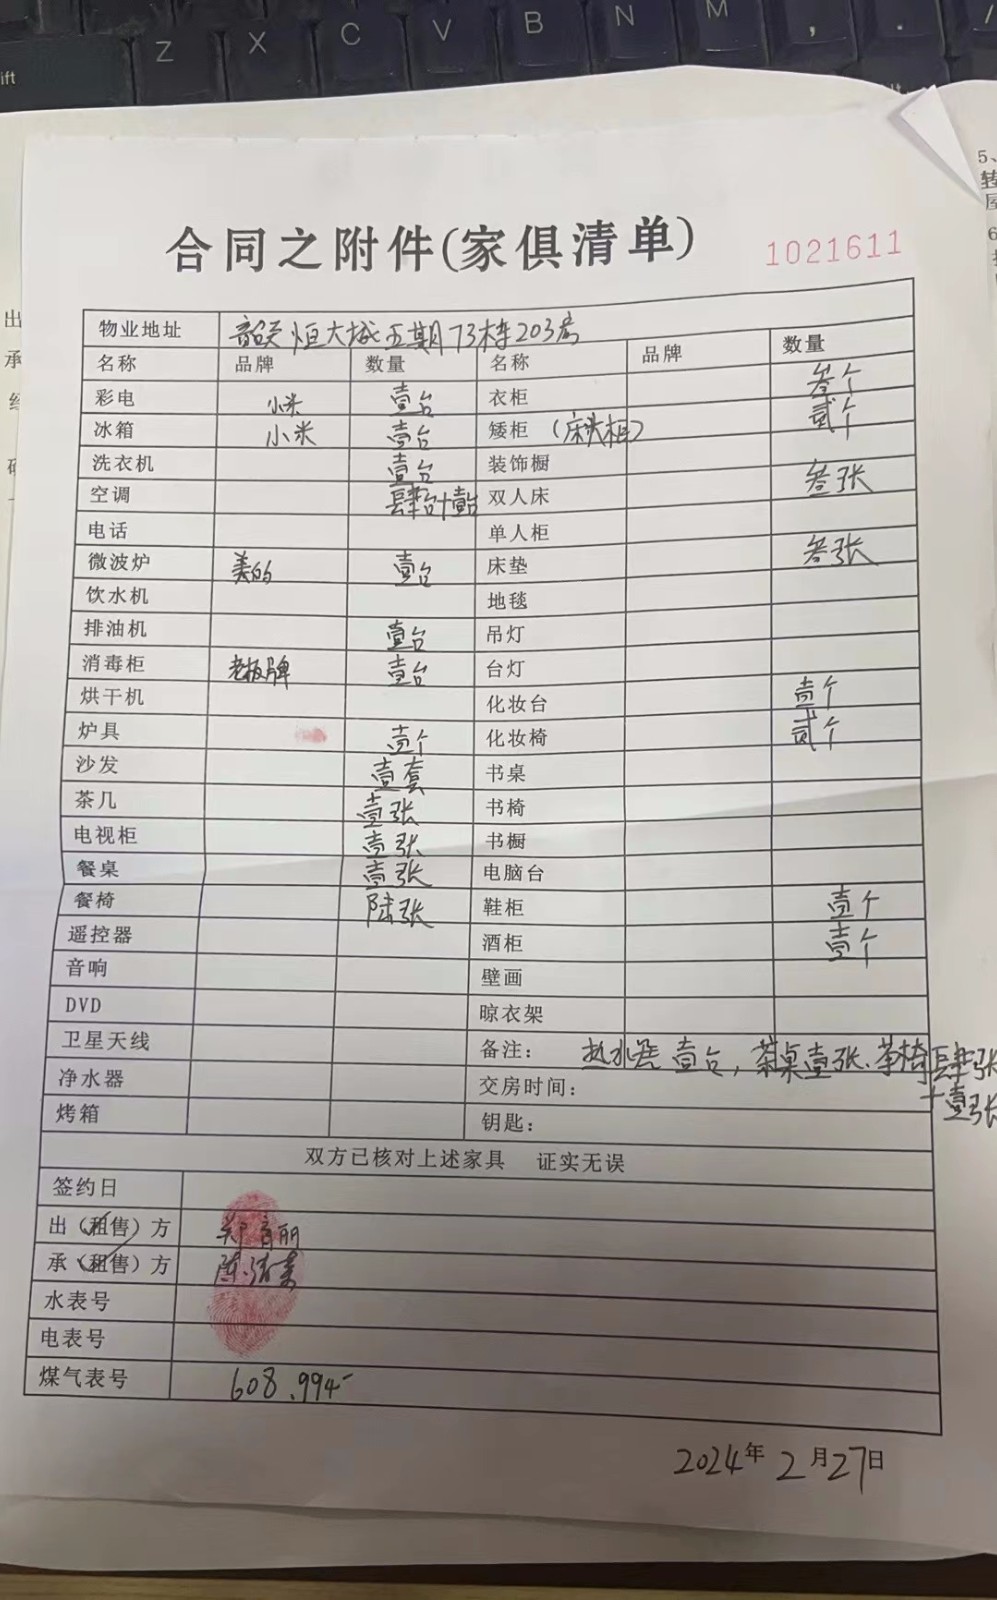 Z X C V B N M , . /
ift
合同之附件(家俱清单)
1021611
物业地址 韶关恒大城五期73栋203房
名称 品牌 数量 名称 品牌 数量
彩电 小米 壹台 衣柜 叁个
冰箱 小米 壹台 矮柜 (床头柜) 贰个
洗衣机 壹台 装饰橱
空调 肆台+壹台 双人床 叁张
电话 单人柜
微波炉 美的 壹台 床垫 叁张
饮水机 地毯
排油机 壹台 吊灯
消毒柜 老板牌 壹台 台灯
烘干机 化妆台 壹个
炉具 壹个 化妆椅 贰个
沙发 壹套 书桌
茶几 壹张 书椅
电视柜 壹张 书橱
餐桌 壹张 电脑台
餐椅 陆张 鞋柜 壹个
遥控器 酒柜 壹个
音响 壁画
DVD 晾衣架
卫星天线 备注: 热水器壹台,茶桌壹张.茶椅肆张
+壹张
净水器 交房时间:
烤箱 钥匙:
双方已核对上述家具 证实无误
签约日
出(租售)方 郑育丽
承(租售)方
水表号
电表号
煤气表号 608.994
2024年2月27日